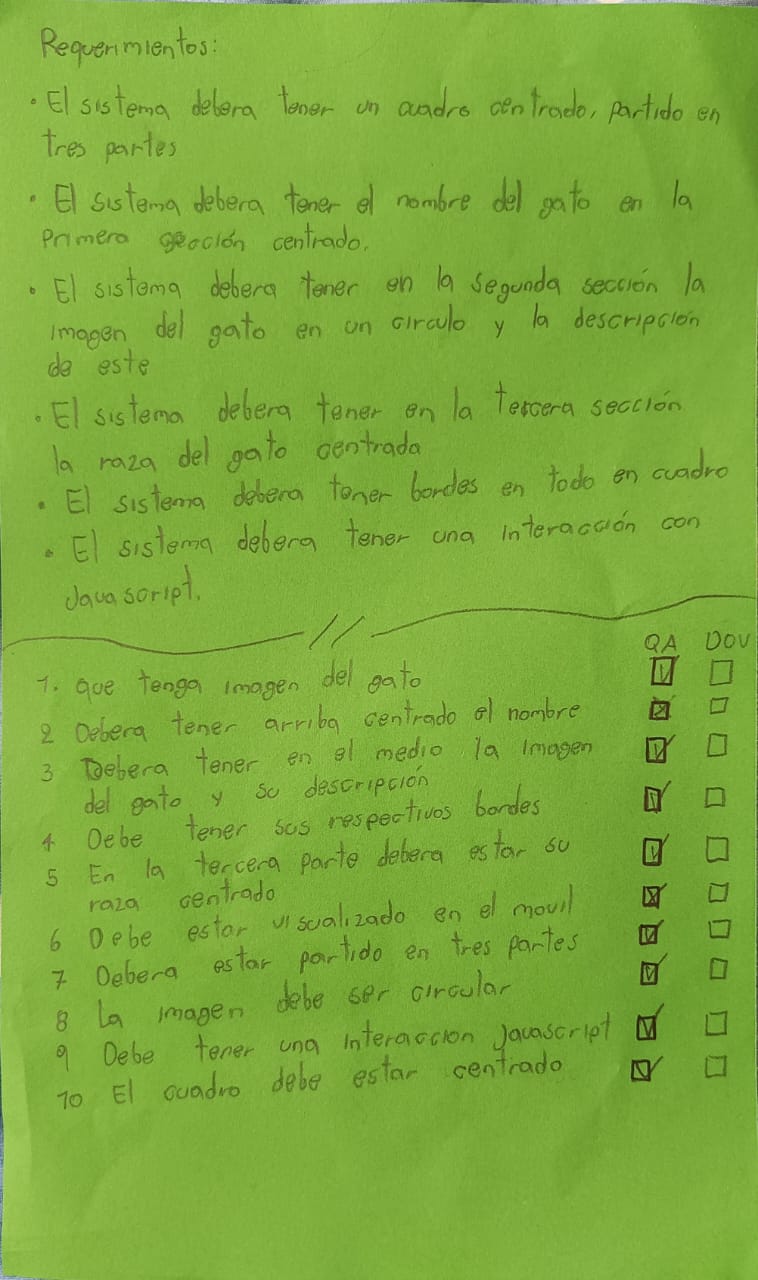 Requerimientos:
• El sistema debera tener un cuadro centrado, partido en
tres partes
• El sistema debera tener el nombre del gato en la
primera sección centrado.
• El sistema debera tener en la segunda sección la
imagen del gato en un circulo y la descripción
de este
• El sistema debera tener en la tercera sección
la raza del gato centrada
• El sistema debera tener bordes en todo en cuadro
• El sistema debera tener una interacción con
Javascript.
//
QA DOV
1. que tenga imagen del gato
2 Debera tener arriba centrado el nombre
3 Debera tener en el medio la imagen
del gato y su descripción
4 Debe tener sus respectivos bordes
5 En la tercera parte debera estar su
raza centrado
6 Debe estar visualizado en el movil
7 Debera estar partido en tres partes
8 La imagen debe ser circular
9 Debe tener una interaccion javascript
10 El cuadro debe estar centrado